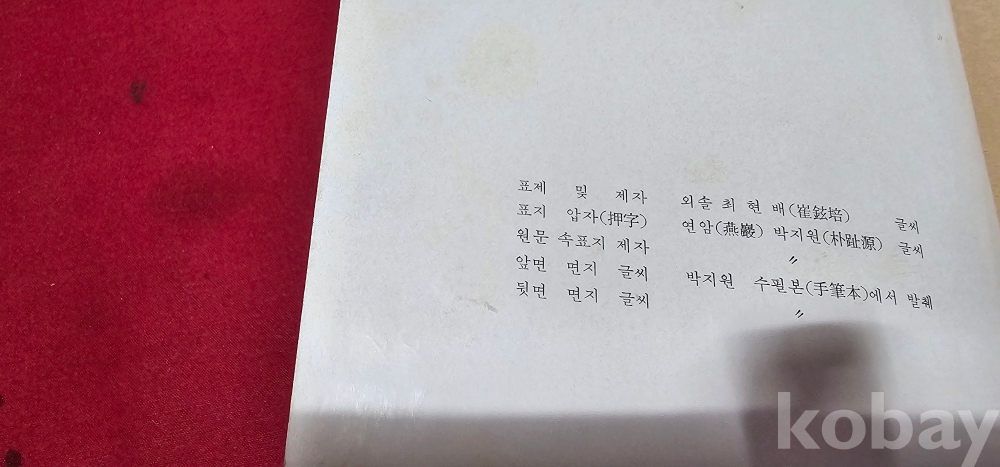 표제 및 제자 외솔 최현배(崔鉉培) 글씨
표지 압자(押字) 연암(燕巖) 박지원(朴趾源) 글씨
원문 속표지 제자 〃
앞면 면지 글씨 박지원 수필본(手筆本)에서 발췌
뒷면 면지 글씨 〃
kobay